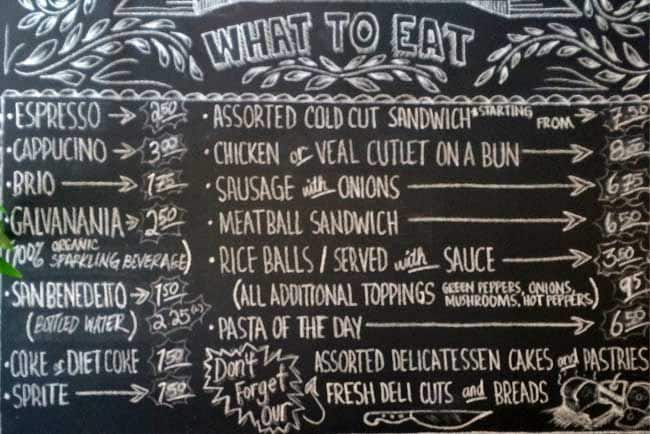 WHAT TO EAT
• ESPRESSO → 2.50
• CAPPUCINO → 3.00
• BRIO → 1.75
GALVANANIA → 2.50
(100% ORGANIC SPARKLING BEVERAGE)
• SAN BENEDETTO → 1.50
(BOTTLED WATER) 2.25
• COKE or DIET COKE 1.50
• SPRITE → 1.50
• ASSORTED COLD CUT SANDWICH *STARTING FROM → 7.50
• CHICKEN or VEAL CUTLET ON A BUN → 8.50
• SAUSAGE with ONIONS → 6.75
• MEATBALL SANDWICH → 6.50
• RICE BALLS / SERVED with SAUCE → 3.50
(ALL ADDITIONAL TOPPINGS GREEN PEPPERS, ONIONS, MUSHROOMS, HOT PEPPERS) 95
• PASTA OF THE DAY → 6.50
Don't Forget Our
ASSORTED DELICATESSEN CAKES and PASTRIES
FRESH DELI CUTS and BREADS